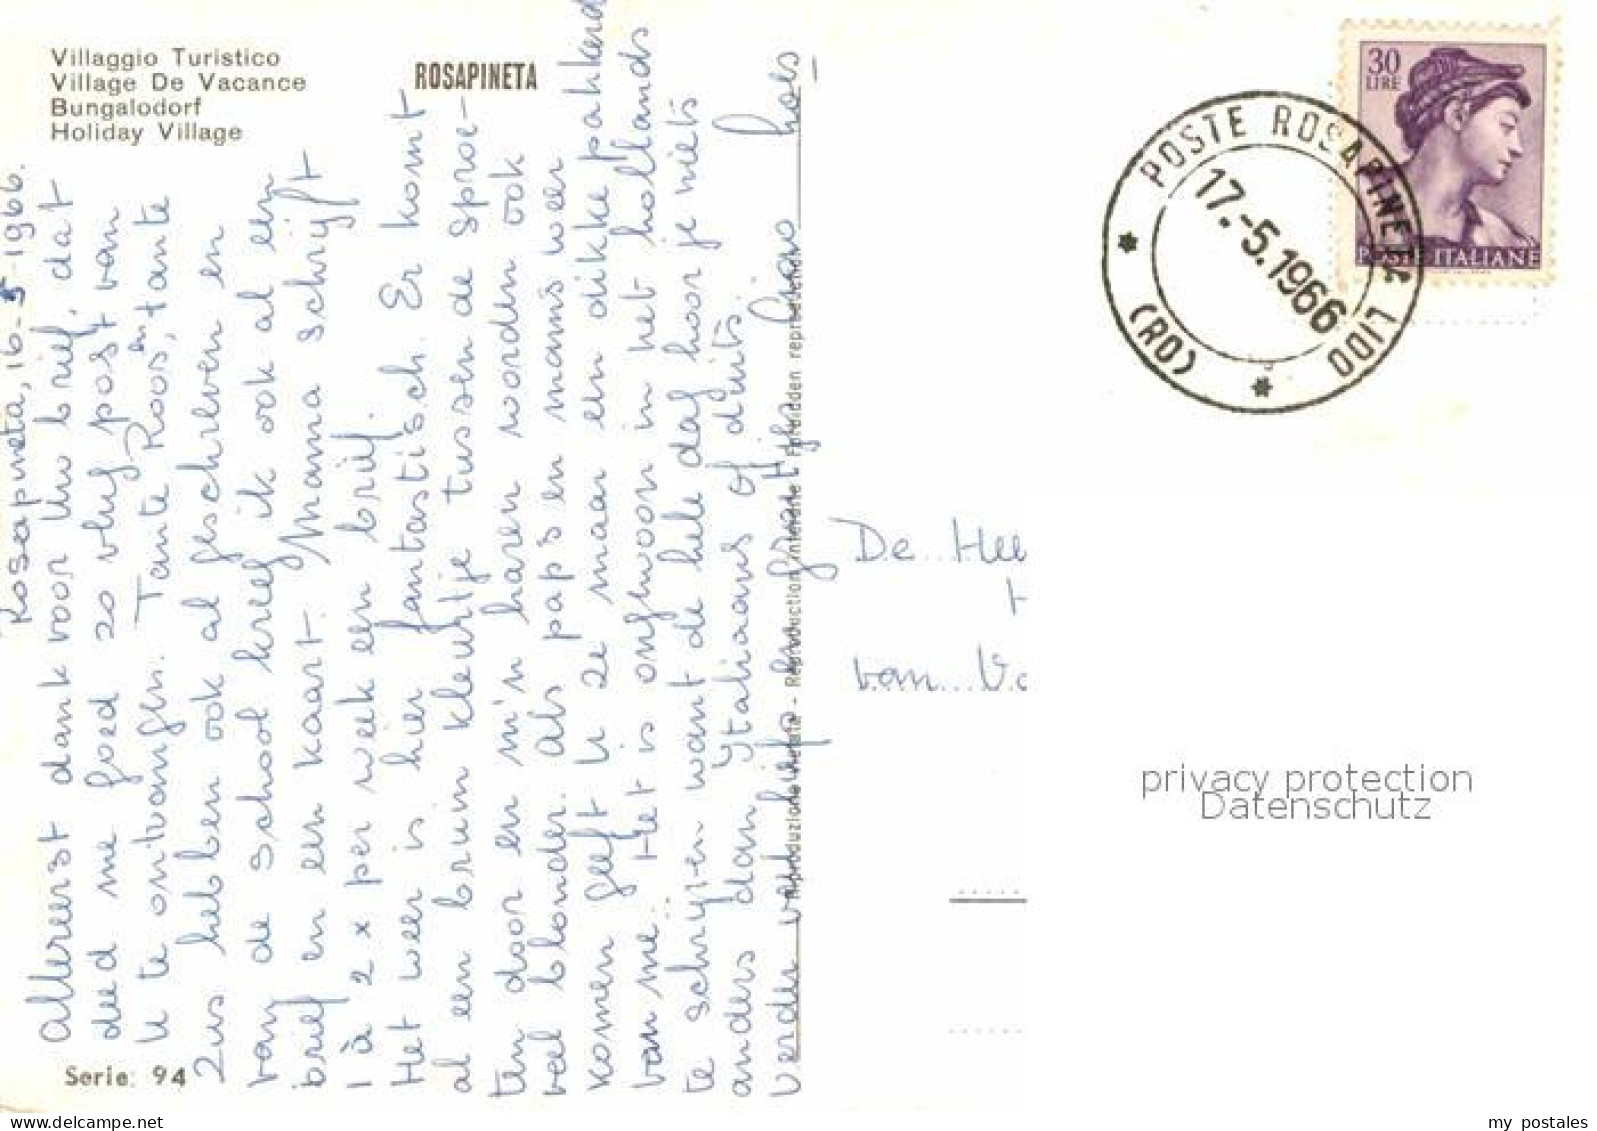 Villaggio Turistico
Village De Vacance
Bungalodorf
Holiday Village
ROSAPINETA
Rosapineta, 16-5-1966.
Allereerst dank voor Uw brief, dat
deed me goed zo vlug post van
U te ontvangen. Tante Roos, en tante
Zus hebben ook al geschreven en
van de school kreeg ik ook al een
brief en een kaart. Mama schrijft
1 à 2 x per week een brief.
Het weer is hier fantastisch. Er komt
al een bruin kleurtje tussen de sproe-
ten door en m'n haren worden ook
veel blonder. Als paps en mams weer
komen geeft U ze maar een dikke pakkerd
van me. Het is ongewoon in het hollands
te schrijven want de hele dag hoor je niets
anders dan Italiaans of duits.
Verder veel liefs en groetjes
Riproduzione vietata - Reproduction interdite Forbidden reproduction
Serie: 94
30
LIRE
POSTE ITALIANE
POSTE ROSAPINETA LIDO
(RO)
17.-5.1966
De Hee
van Vo
privacy protection
Datenschutz
my postales